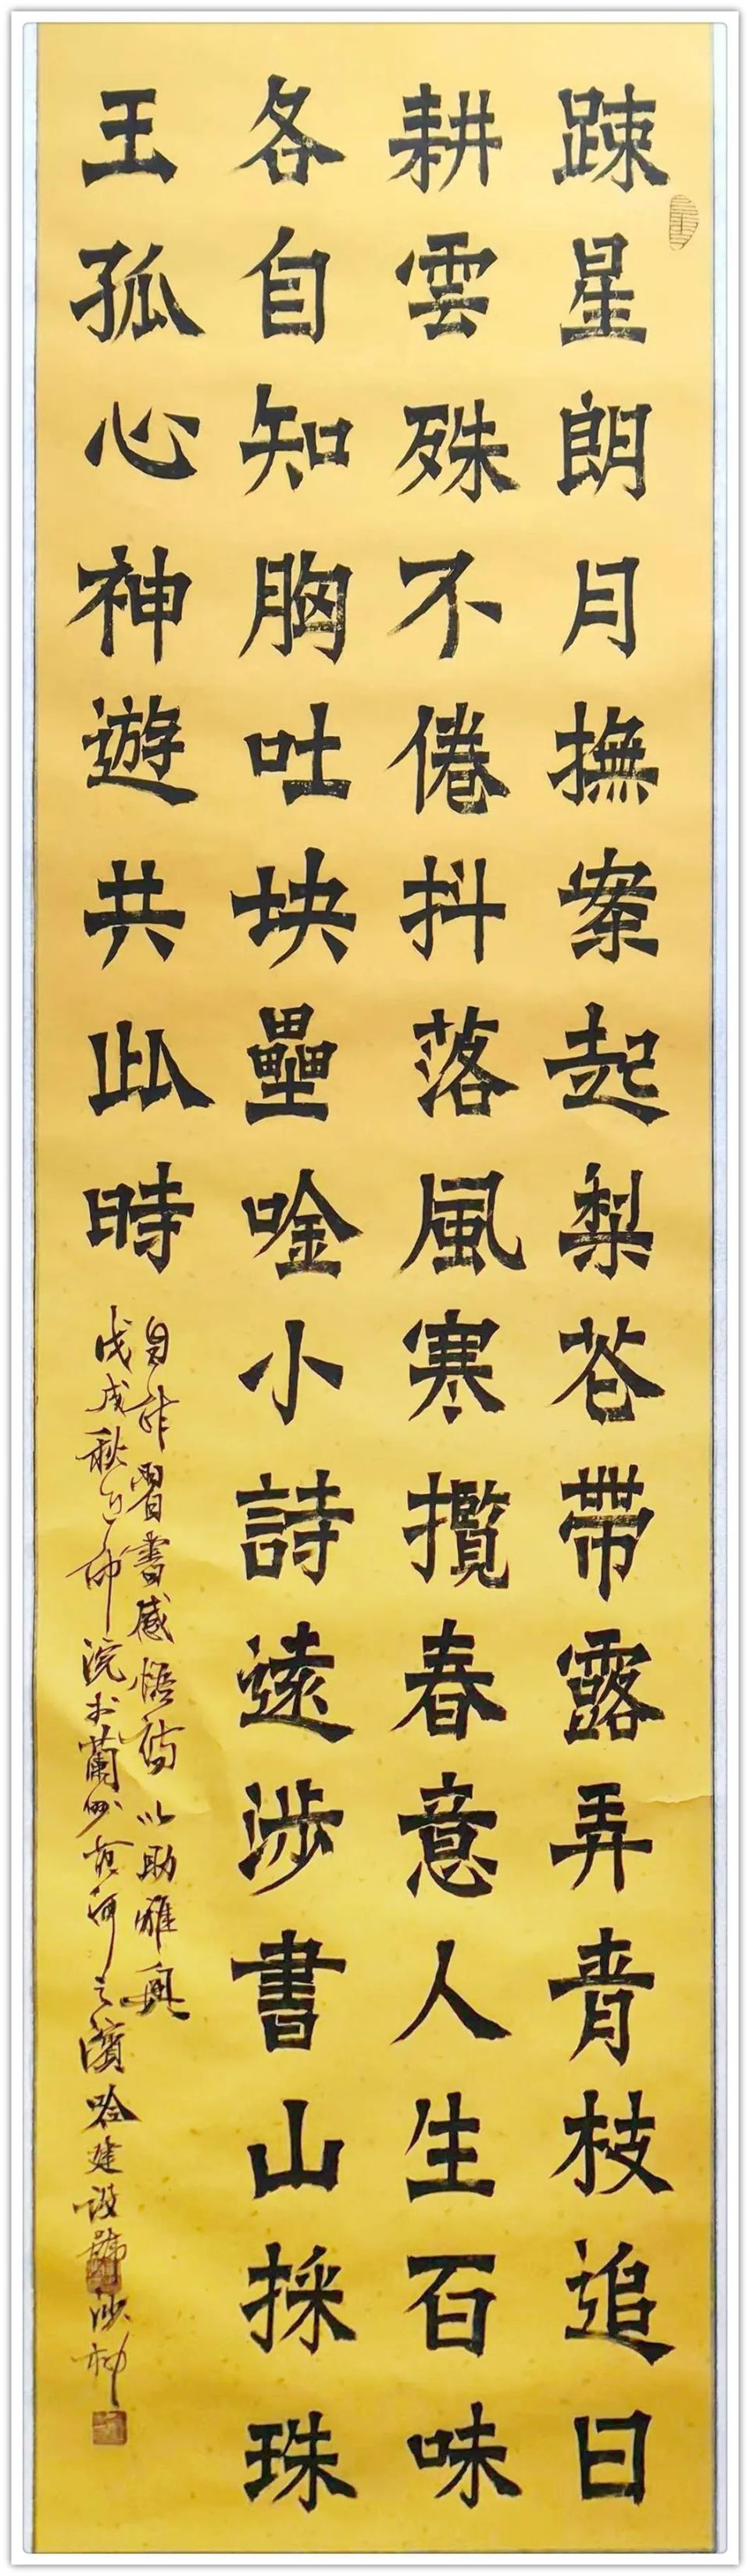 踈星朗月撫案起梨花帶露弄青枝追日
耕雲殊不倦抖落風寒攬春意人生百味
各自知胸吐块壘唫小詩遠涉書山採珠
王孤心神遊共此時
自作習書感悟詩以助雅興
戊戌秋月師院於蘭州黄河之濱